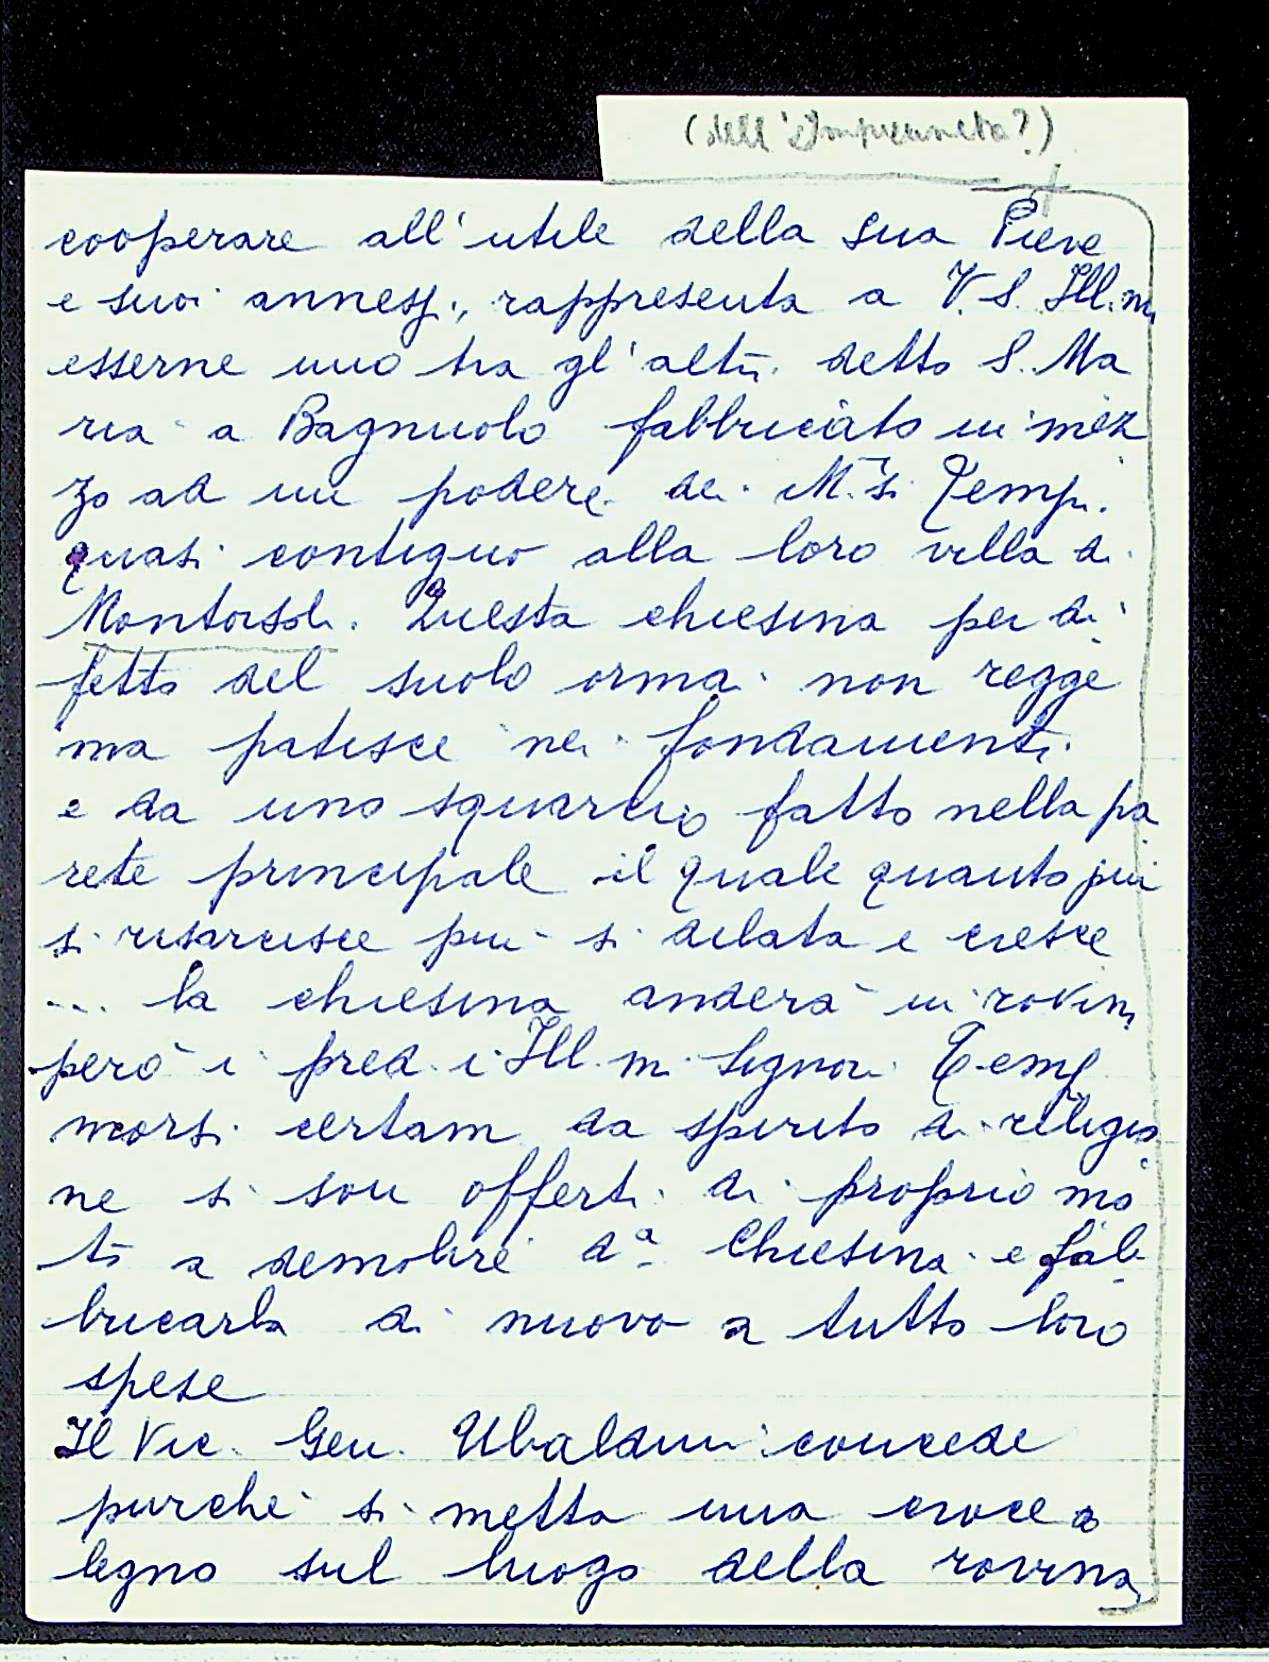 (dell'Impruneta?)
cooperare all'utile della sua Pieve
e suoi annessi, rappresenta a V. S. Ill.m
esserne uno tra gl'altri detto S. Ma
ria a Bagnuolo fabbricato in mez
zo ad un podere dei M.si Tempi
quasi contiguo alla loro villa di
Montorsoli. Questa chiesina per di
fetto del suolo ormai non regge
ma patisce nei fondamenti
e da uno squarcio fatto nella pa
rete principale il quale quanto più
si risarcisce più si dilata e cresce
... la chiesina anderà in rovina
però i pred. i Ill.mi Signori Tempi
mossi certam da spirito di religio
ne si son offerti di proprio mo
to a demolire da Chiesina e fab
bricarla di nuovo a tutto loro
spese
Il Vic. Gen. Ubaldini concede
purché si metta una croce
legno sul luogo della rovina